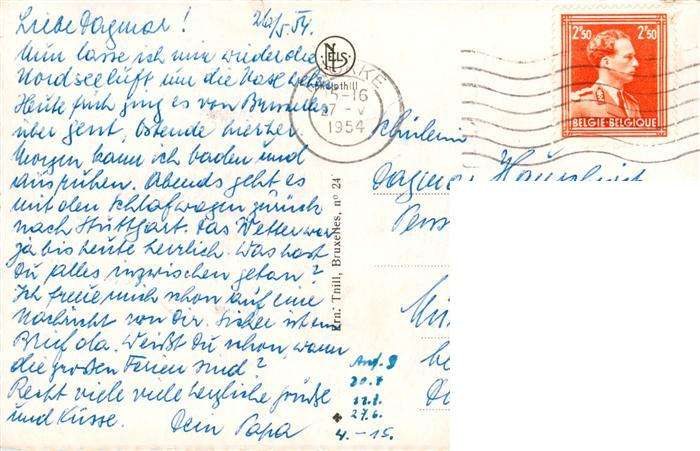 Liebe Dagmar! 26/5 54.
Nun lasse ich mir wieder die
Nordseeluft um die Nase wehen
Heute früh ging es von Brüssel
über Gent, Ostende hierher.
Morgen kann ich baden und
ausruhen. Abends geht es
mit dem Schlafwagen zurück
nach Stuttgart. Das Wetter war
ja bis heute herrlich. Was hast
Du alles inzwischen getan?
Ich freue mich schon auf eine
Nachricht von Dir. Sicher ist ein
Brief da. Weißt Du schon, wann
die großen Ferien sind?
Recht viele viele herzliche Grüße
und Küsse. Dein Papa
NELS
15-16
1954
Ern. Thill, Bruxelles, nº 24
2F50 2F50
BELGIE-BELGIQUE
Schülerin
Dagmar
4.-15.